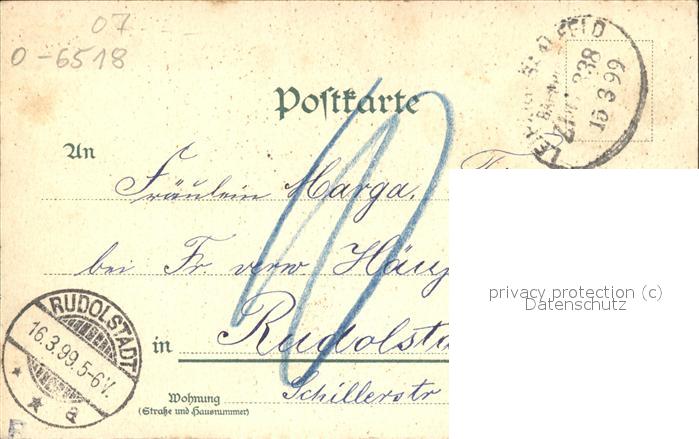 07
0-6518
FELD
338
15 3 99
Postkarte
An
Fräulein Marga.
bei Fr. verw
privacy protection (c)
Datenschutz
RUDOLSTADT
16.3.99.5-6V.
* * a
in Rudolsta
Wohnung Schillerstr
(Straße und Hausnummer)